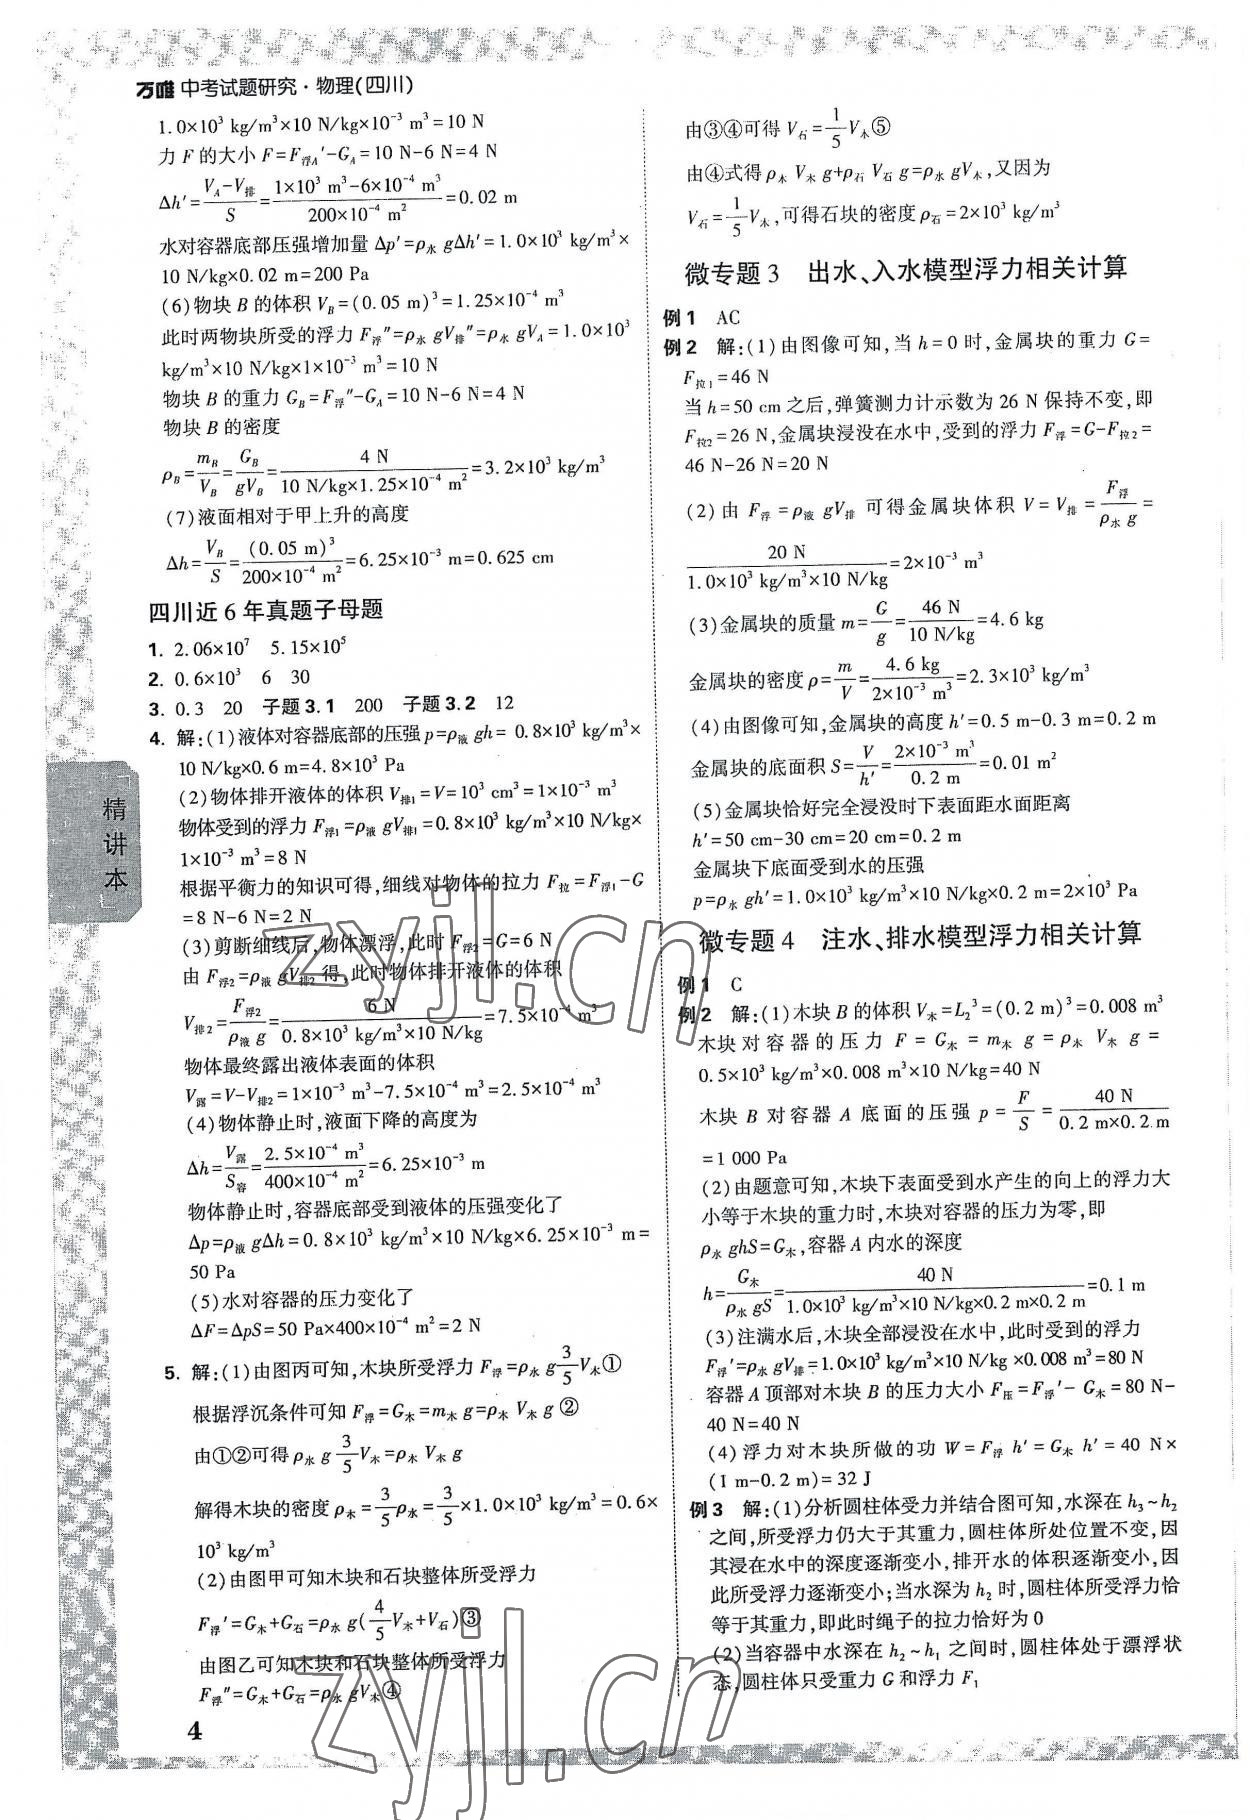 万唯 中考试题研究·物理(四川)
1.0×10³ kg/m³×10 N/kg×10⁻³ m³=10 N
力 F 的大小 F=F浮A′-G_A=10 N-6 N=4 N
Δh′=(V_A-V排)/S=(1×10³ m³-6×10⁻⁴ m³)/(200×10⁻⁴ m²)=0.02 m
水对容器底部压强增加量 Δp′=ρ水 gΔh′=1.0×10³ kg/m³×
10 N/kg×0.02 m=200 Pa
(6)物块 B 的体积 V_B=(0.05 m)³=1.25×10⁻⁴ m³
此时两物块所受的浮力 F浮″=ρ水 gV排″=ρ水 gV_A=1.0×10³
kg/m³×10 N/kg×1×10⁻³ m³=10 N
物块 B 的重力 G_B=F浮″-G_A=10 N-6 N=4 N
物块 B 的密度
ρ_B=m_B/V_B=G_B/(gV_B)=4 N/(10 N/kg×1.25×10⁻⁴ m²)=3.2×10³ kg/m³
(7)液面相对于甲上升的高度
Δh=V_B/S=(0.05 m)³/(200×10⁻⁴ m²)=6.25×10⁻³ m=0.625 cm
四川近 6 年真题子母题
1. 2.06×10⁷ 5.15×10⁵
2. 0.6×10³ 6 30
3. 0.3 20 子题 3.1 200 子题 3.2 12
4. 解:(1)液体对容器底部的压强 p=ρ液 gh= 0.8×10³ kg/m³×
10 N/kg×0.6 m=4.8×10³ Pa
(2)物体排开液体的体积 V排1=V=10³ cm³=1×10⁻³ m³
物体受到的浮力 F浮1=ρ液 gV排1=0.8×10³ kg/m³×10 N/kg×
1×10⁻³ m³=8 N
根据平衡力的知识可得,细线对物体的拉力 F拉=F浮1-G
=8 N-6 N=2 N
(3)剪断细线后,物体漂浮,此时 F浮2=G=6 N
由 F浮2=ρ液 gV排2得,此时物体排开液体的体积
V排2=F浮2/(ρ液 g)=6 N/(0.8×10³ kg/m³×10 N/kg)=7.5×10⁻⁴ m³
物体最终露出液体表面的体积
V露=V-V排2=1×10⁻³ m³-7.5×10⁻⁴ m³=2.5×10⁻⁴ m³
(4)物体静止时,液面下降的高度为
Δh=V露/S容=(2.5×10⁻⁴ m³)/(400×10⁻⁴ m²)=6.25×10⁻³ m
物体静止时,容器底部受到液体的压强变化了
Δp=ρ液 gΔh=0.8×10³ kg/m³×10 N/kg×6.25×10⁻³ m=
50 Pa
(5)水对容器的压力变化了
ΔF=ΔpS=50 Pa×400×10⁻⁴ m²=2 N
5. 解:(1)由图丙可知,木块所受浮力 F浮=ρ水 g 3/5 V木①
根据浮沉条件可知 F浮=G木=m木 g=ρ木 V木 g ②
由①②可得 ρ水 g 3/5 V木=ρ木 V木 g
解得木块的密度 ρ木=3/5 ρ水=3/5×1.0×10³ kg/m³=0.6×
10³ kg/m³
(2)由图甲可知木块和石块整体所受浮力
F浮′=G木+G石=ρ水 g(4/5 V木+V石)③
由图乙可知木块和石块整体所受浮力
F浮″=G木+G石=ρ水 gV木④
由③④可得 V石=1/5 V木⑤
由④式得 ρ木 V木 g+ρ石 V石 g=ρ水 gV木,又因为
V石=1/5 V木,可得石块的密度 ρ石=2×10³ kg/m³
微专题 3 出水、入水模型浮力相关计算
例 1 AC
例 2 解:(1)由图像可知,当 h=0 时,金属块的重力 G=
F拉1=46 N
当 h=50 cm 之后,弹簧测力计示数为 26 N 保持不变,即
F拉2=26 N,金属块浸没在水中,受到的浮力 F浮=G-F拉2=
46 N-26 N=20 N
(2)由 F浮=ρ液 gV排 可得金属块体积 V=V排=F浮/(ρ水 g)=
20 N/(1.0×10³ kg/m³×10 N/kg)=2×10⁻³ m³
(3)金属块的质量 m=G/g=46 N/(10 N/kg)=4.6 kg
金属块的密度 ρ=m/V=4.6 kg/(2×10⁻³ m³)=2.3×10³ kg/m³
(4)由图像可知,金属块的高度 h′=0.5 m-0.3 m=0.2 m
金属块的底面积 S=V/h′=(2×10⁻³ m³)/(0.2 m)=0.01 m²
(5)金属块恰好完全浸没时下表面距水面距离
h′=50 cm-30 cm=20 cm=0.2 m
金属块下底面受到水的压强
p=ρ水 gh′=1.0×10³ kg/m³×10 N/kg×0.2 m=2×10³ Pa
微专题 4 注水、排水模型浮力相关计算
例 1 C
例 2 解:(1)木块 B 的体积 V木=L₂³=(0.2 m)³=0.008 m³
木块对容器的压力 F = G木 = m木 g = ρ木 V木 g =
0.5×10³ kg/m³×0.008 m³×10 N/kg=40 N
木块 B 对容器 A 底面的压强 p=F/S=40 N/(0.2 m×0.2 m)
=1 000 Pa
(2)由题意可知,木块下表面受到水产生的向上的浮力大
小等于木块的重力时,木块对容器的压力为零,即
ρ水 ghS=G木,容器 A 内水的深度
h=G木/(ρ水 gS)=40 N/(1.0×10³ kg/m³×10 N/kg×0.2 m×0.2 m)=0.1 m
(3)注满水后,木块全部浸没在水中,此时受到的浮力
F浮′=ρ水 gV排=1.0×10³ kg/m³×10 N/kg ×0.008 m³=80 N
容器 A 顶部对木块 B 的压力大小 F压=F浮′- G木=80 N-
40 N=40 N
(4)浮力对木块所做的功 W=F浮 h′=G木 h′=40 N×
(1 m-0.2 m)=32 J
例 3 解:(1)分析圆柱体受力并结合图可知,水深在 h₃~h₂
之间,所受浮力仍大于其重力,圆柱体所处位置不变,因
其浸在水中的深度逐渐变小,排开水的体积逐渐变小,因
此所受浮力逐渐变小;当水深为 h₂ 时,圆柱体所受浮力恰
等于其重力,即此时绳子的拉力恰好为 0
(2)当容器中水深在 h₂~h₁ 之间时,圆柱体处于漂浮状
态,圆柱体只受重力 G 和浮力 F₁
精讲本
4
zyjl.cn
zyjl.cn